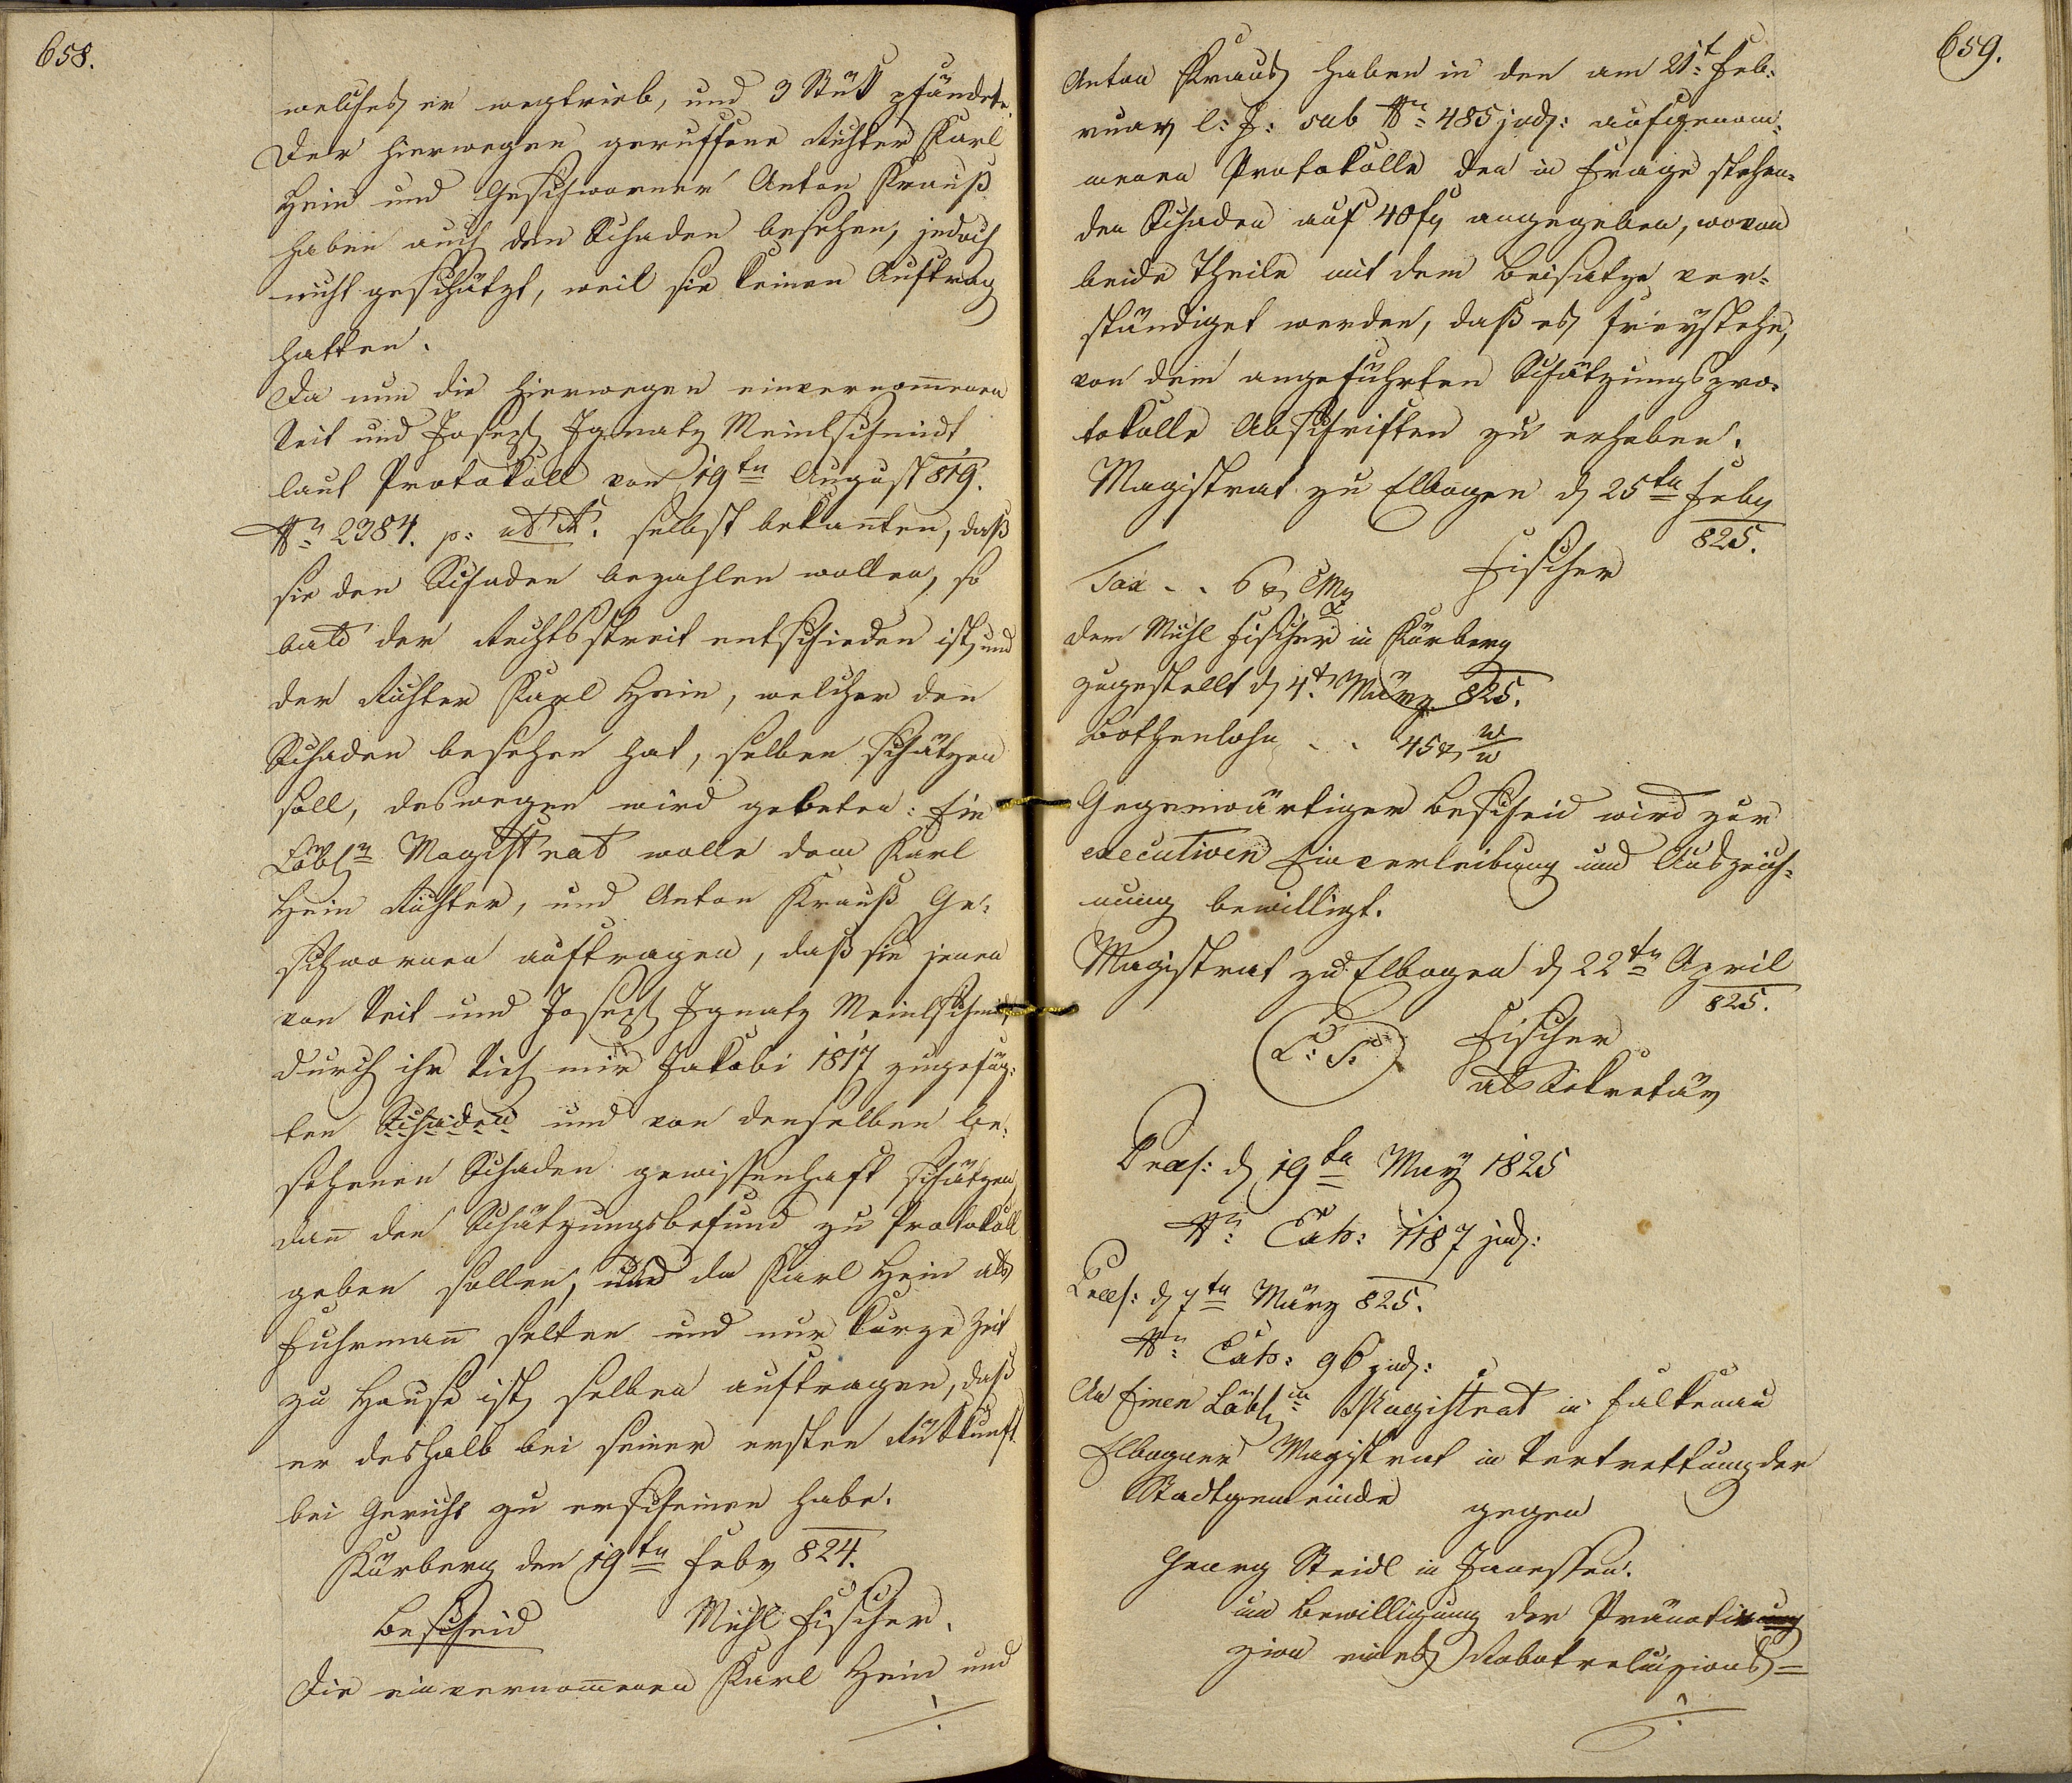 658.
welches er wegtrieb, und 3 Stük pfändete.
Der hierwegen geruffene Richter Karl
Hein und Geschworner Anton Krauß
haben auch den Schaden besehen, jedoch
nicht geschätzt, weil sie keinen Auftrag
hatten.
Da nun die hierwegen einvernom̅enen
Veit und Joseph Ignatz Meinlschmidt
laut Protokoll von 19ten August 819.
Nr 2384. p: selbst bekan̅ten, daß
sie den Schaden bezahlen wollen, so
bald der Rechtsstreit entschieden ist, und
der Richter Karl Hein, welcher den
Schaden besehen hat, selben schätzen
soll, deswegen wird gebeten: Ein
Löblr Magistrat wolle dem Karl
Hein Richter, und Anton Krauß Ge-
schwornen auftragen, daß sie jenen
von Veit und Joseph Ignatz Meinlschmidt
durch ihr Vieh mir Jakobi 1817 zugefüg-
ten Schaden und von denselben be-
sehenen Schaden gewissenhaft schätzen,
dan̅ den Schätzungsbefund zu Protokoll
geben sollen, und da Karl Hein als
Fuhrman̅ selten und nur kurze Zeit
zu Hause ist, selben auftragen, daß
er deshalb bei seiner ersten Rükkunft
bei Gericht zu erscheinen habe.
Kärberg den 19ten Feby 824.
Bescheid Michl Fischer.
Die einvernom̅enen Karl Hein und
./.
659.
Anton Kraus haben in den am 21t Feb-
ruar l: J: sub Nr 485 jud: aufgenom-
menen Protokolle den in Frage stehen-
den Schaden auf 40 fr angegeben, wovon
beide Theile mit dem Beisatze ver-
ständiget werden, daß es freystehe,
von dem angeführten Schätzungspro-
tokolle Abschriften zu erheben.
Magistrat zu Elbogen d 25ten Feby
825.
Fischer
Tax . . 6 x CMz
dem Michl Fischer in Kärberg
zugestellt d 4t März 825.
Bothenlohn . . 45 x W/W
Gegenwärtiger Bescheid wird zur
executiven Einverleibung und Auszeich-
nung bewilligt.
Magistrat zu Elbogen d 22ten April
825.
L: S: Fischer
als Sekretär
Præs: d 19ten May 1825
Nr Exh: 1187 jud:
Præs: d 7ten März 825.
Nr Exh: 96 jud:
An Einen Löbln Magistrat in Falkenau
Elbogner Magistrat in Vertrettung der
Stadtgemeinde gegen
Georg Steidl in Janessen.
um Bewilligung der Pränotirung
zion eines Robotreluizions=
./.